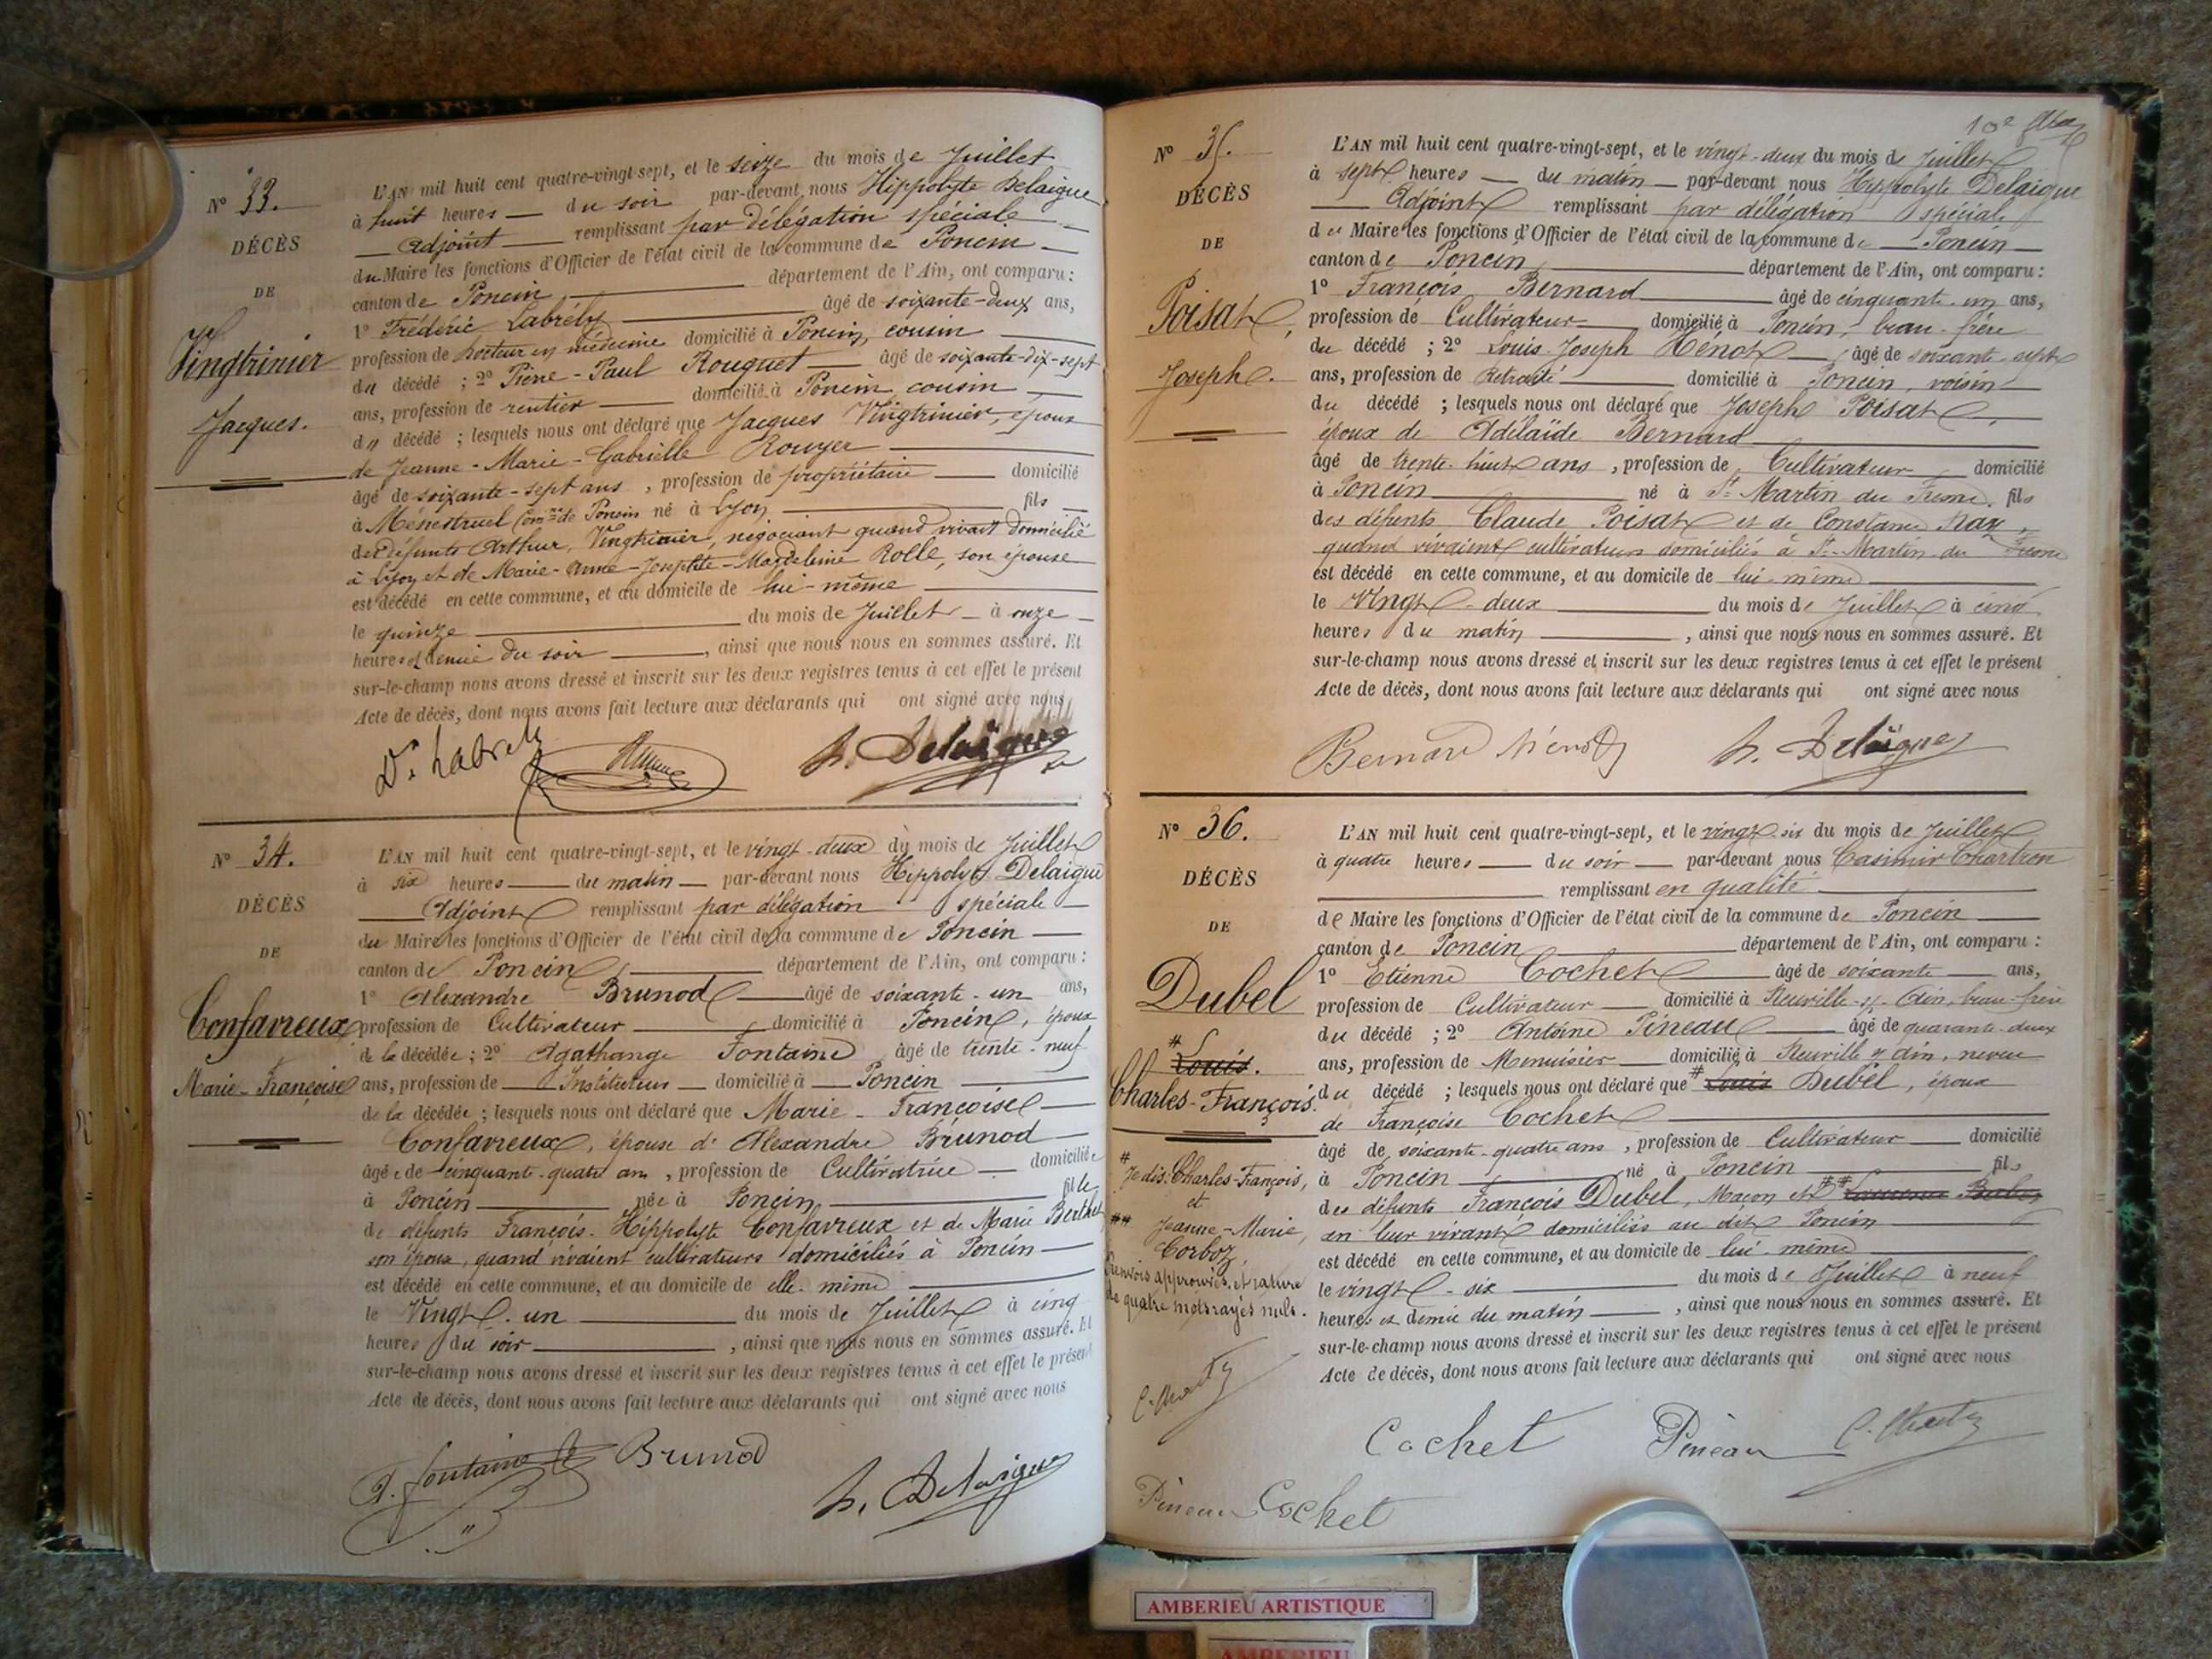 N° 33.
DÉCÈS
DE
Vingtrinier
Jacques.
L'AN mil huit cent quatre-vingt-sept, et le seize du mois de Juillet
à huit heures du soir par-devant nous Hippolyte Delaigue
adjoint remplissant par délégation spéciale
du Maire les fonctions d'Officier de l'état civil de la commune de Poncin
canton de Poncin département de l'Ain, ont comparu :
1° Frédéric Labrély âgé de soixante-deux ans,
profession de docteur en médecine domicilié à Poncin, cousin
du décédé ; 2° Pierre-Paul Rouguet âgé de soixante-dix-sept
ans, profession de rentier domicilié à Poncin cousin
du décédé ; lesquels nous ont déclaré que Jacques Vingtrinier, époux
de Jeanne-Marie-Gabrielle Rouyer
âgé de soixante-sept ans, profession de propriétaire domicilié
à Ménestruel Comne de Poncin né à Lyon fils
des défunts Arthur Vingtrinier, négociant quand vivait domicilié
à Lyon et de Marie-Anne-Josephte-Magdeleine Rolle, son épouse
est décédé en cette commune, et au domicile de lui-même
le quinze du mois de Juillet à onze
heures et demie du soir, ainsi que nous nous en sommes assuré. Et
sur-le-champ nous avons dressé et inscrit sur les deux registres tenus à cet effet le présent
Acte de décès, dont nous avons fait lecture aux déclarants qui ont signé avec nous
Dr. Labrely h. Delaigue
N° 34.
DÉCÈS
DE
Confavreux
Marie-Françoise
L'AN mil huit cent quatre-vingt-sept, et le vingt-deux du mois de Juillet
à six heures du matin par-devant nous Hippolyte Delaigue
Adjoint remplissant par délégation spéciale
du Maire les fonctions d'Officier de l'état civil de la commune de Poncin
canton de Poncin département de l'Ain, ont comparu :
1° Alexandre Brunod âgé de soixante-un ans,
profession de Cultivateur domicilié à Poncin, époux
de la décédée ; 2° Agathange Fontaine âgé de trente-neuf
ans, profession de Instituteur domicilié à Poncin
de la décédée ; lesquels nous ont déclaré que Marie-Françoise
Confavreux, épouse d'Alexandre Brunod
âgée de cinquante-quatre ans, profession de Cultivatrice domiciliée
à Poncin née à Poncin fille
de défunts François-Hippolyte Confavreux et de Marie Berthet
son époux, quand vivaient cultivateurs domiciliés à Poncin
est décédé en cette commune, et au domicile de elle-même
le Vingt-un du mois de Juillet à cinq
heures du soir, ainsi que nous nous en sommes assuré. Et
sur-le-champ nous avons dressé et inscrit sur les deux registres tenus à cet effet le présent
Acte de décès, dont nous avons fait lecture aux déclarants qui ont signé avec nous
A. Fontaine Brunod h. Delaigue
N° 35.
DÉCÈS
DE
Poisat,
Joseph.
L'AN mil huit cent quatre-vingt-sept, et le vingt-deux du mois de Juillet
à sept heures du matin par-devant nous Hippolyte Delaigue
Adjoint remplissant par délégation spéciale
du Maire les fonctions d'Officier de l'état civil de la commune de Poncin
canton de Poncin département de l'Ain, ont comparu :
1° François Bernard âgé de cinquante-un ans,
profession de Cultivateur domicilié à Poncin, beau-frère
du décédé ; 2° Louis-Joseph Hénot âgé de soixante-sept
ans, profession de Retraité domicilié à Poncin, voisin
du décédé ; lesquels nous ont déclaré que Joseph Poisat,
époux de Adélaïde Bernard
âgé de trente-huit ans, profession de Cultivateur domicilié
à Poncin né à St Martin du Fresne. fils
des défunts Claude Poisat et de Constance
quand vivaient cultivateurs domiciliés à St-Martin-du Fresne
est décédé en cette commune, et au domicile de lui-même
le Vingt-deux du mois de Juillet à cinq
heures du matin, ainsi que nous nous en sommes assuré. Et
sur-le-champ nous avons dressé et inscrit sur les deux registres tenus à cet effet le présent
Acte de décès, dont nous avons fait lecture aux déclarants qui ont signé avec nous
Bernard Hénot h. Delaigue
N° 36.
DÉCÈS
DE
Dubel
# Louis.
Charles-François.
# Je dis: Charles-François,
et
## Jeanne-Marie,
Corboz,
renvois approuvés et rature
de quatre mots rayés nuls.
Pineau Cochet
L'AN mil huit cent quatre-vingt-sept, et le vingt-six du mois de Juillet
à quatre heures du soir par-devant nous Casimir Chartron
remplissant en qualité
de Maire les fonctions d'Officier de l'état civil de la commune de Poncin
canton de Poncin département de l'Ain, ont comparu :
1° Etienne Cochet âgé de soixante ans,
profession de Cultivateur domicilié à Neuville-s/-Ain, beau-frère
du décédé ; 2° Antoine Pineau âgé de quarante-deux
ans, profession de Menuisier domicilié à Neuville s/ Ain, neveu
du décédé ; lesquels nous ont déclaré que # Louis Dubel, époux
de Françoise Cochet
âgé de soixante-quatre ans, profession de Cultivateur domicilié
à Poncin né à Poncin fils
des défunts François Dubel, Maçon et ##
en leur vivant domiciliés au dit Poncin
est décédé en cette commune, et au domicile de lui-même
le vingt-six du mois de Juillet à neuf
heures et demie du matin, ainsi que nous nous en sommes assuré. Et
sur-le-champ nous avons dressé et inscrit sur les deux registres tenus à cet effet le présent
Acte de décès, dont nous avons fait lecture aux déclarants qui ont signé avec nous
Cochet Pineau
AMBERIEU ARTISTIQUE
AMBERIEU